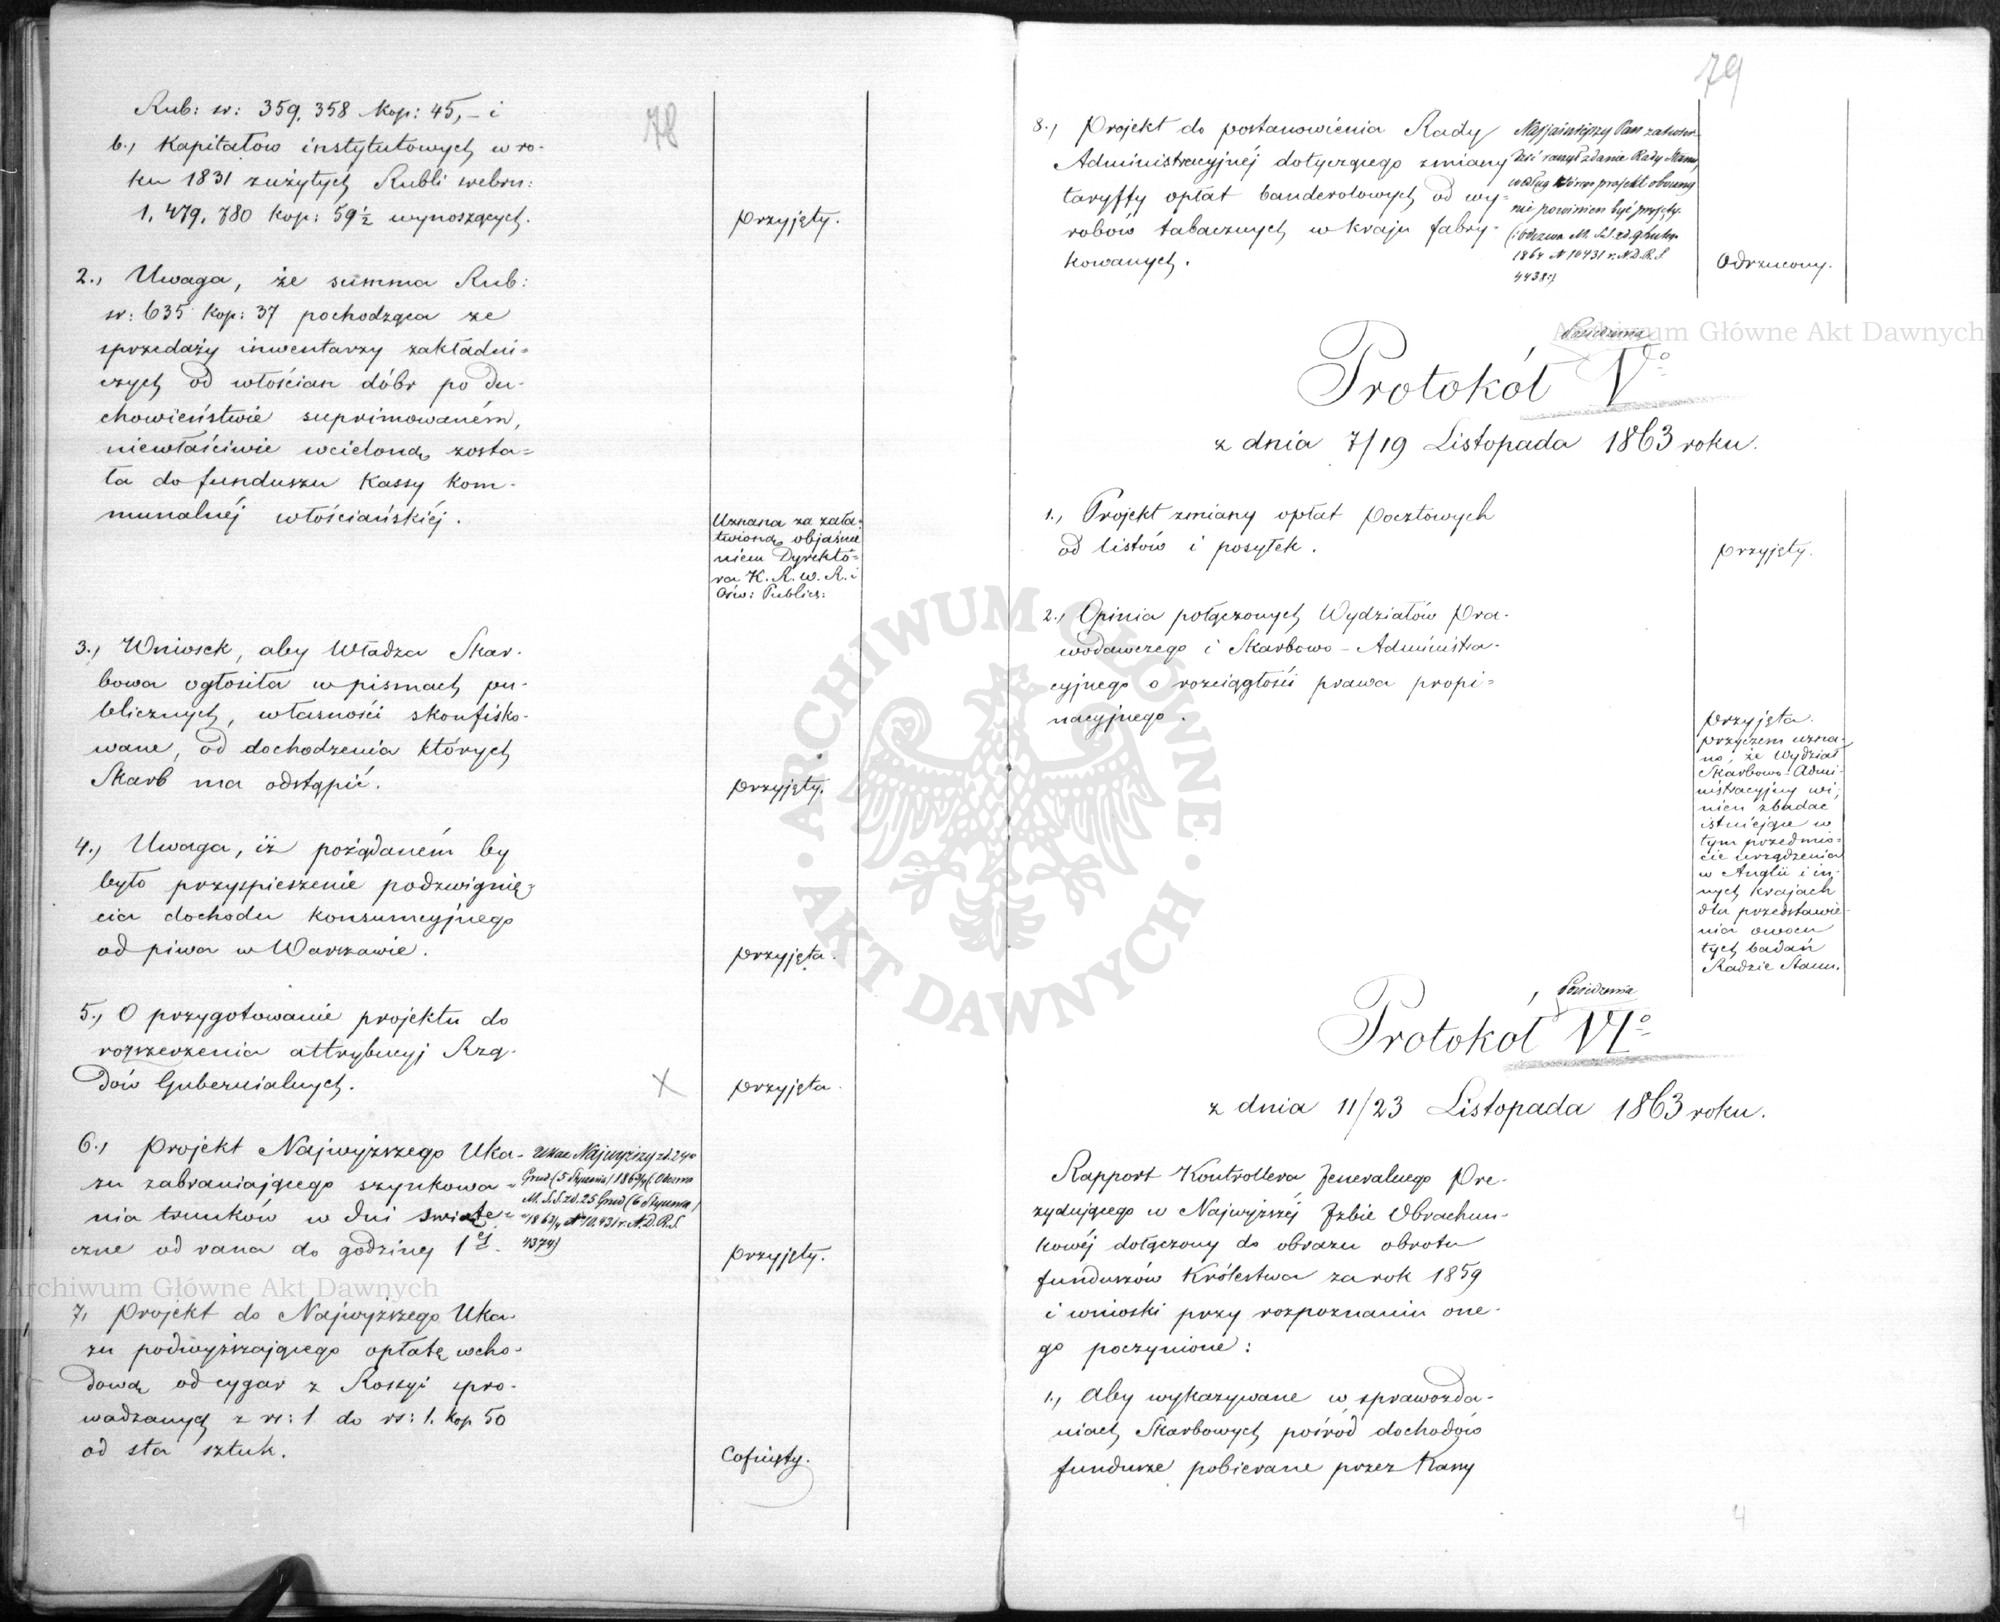 78
Rub: sr: 359,358 kop: 45,– i
b., Kapitałów instytutowych w ro-
ku 1831 zużytych Rubli srebrn:
1,479,780 kop: 59½ wynoszących.
przyjęty.
2., Uwaga, że summa Rub:
sr: 635 kop: 37 pochodząca ze
sprzedaży inwentarzy zakładni=
czych od włościan dóbr po du-
chowieństwie suprimowaném,
niewłaściwie wcieloną zosta=
ła do funduszu Kassy kom-
munalnéj włościańskiéj.
Uznana za zała-
twioną objaśnie
niem Dyrekto=
ra K. R. w. R. i
Ośw: Public:
3., Wniosek, aby Władza Skar-
bowa ogłosiła w pismach pu-
blicznych, własności skonfisko-
wane, od dochodzenia których
Skarb ma odstąpić.
przyjęty.
4., Uwaga, iż pożądaném by
było przyspieszenie podźwignię-
cia dochodu konsumcyjnego
od piwa w Warszawie.
przyjęta.
5., O przygotowanie projektu do
rozszerzenia attrybucyj Rzą-
dów Gubernialnych.
X
przyjęta.
6., Projekt Najwyższego Uka-
zu zabraniającego szynkowa=
nia trunków w dni świąte=
czne od rana do godziny 1éj.
Ukaz Najwyższy z d. 24o
Grud (5 Stycznia) 1863/4 (: Odezwa
M. S. S. z d. 25 Grud (6 Stycznia)
1863/4 N 10,431 r. N. D. R. S
4374)
przyjęty.
7, Projekt do Najwyższego Uka-
zu podwyższającego opłatę wcho-
dową od cygar z Rossyi spro-
wadzanych z rs: 1. do rs: 1. kop 50
od sta sztuk.
Cofnięty.
79
8., Projekt do postanowienia Rady
Administracyjnéj dotyczącego zmiany
taryffy opłat banderolowych od wy-
robów tabacznych w kraju fabry-
kowanych.
Najjaśniejszy Pan zatwier-
dzić raczył zdanie Rady Stanu,
według którego projekt obecny
nie powinien być przyjęty.
(: Odezwa M. S. S. z d.
1864 N 10431 r. N. D. R. S.
4438:)
Odrzucony.
Posiedzenia
Protokół Vo
z dnia 7/19 Listopada 1863 roku.
1., Projekt zmiany opłat pocztowych
od listów i posyłek.
przyjęty.
2., Opinia połączonych Wydziałów Pra-
wodawczego i Skarbowo-Administra-
cyjnego o rozciągłości prawa propi=
nacyjnego.
przyjęta.
przyczem uzna-
no, że Wydział
Skarbowo-Admi-
nistracyjny wi,
nien zbadać
istniejące w
tym przedmio-
cie urządzenia
w Anglii i in-
nych krajach
dla przedstawie-
nia owocu
tych badań
Radzie Stanu.
Posiedzenia
Protokół VIo
z dnia 11/23 Listopada 1863 roku.
Rapport Kontrollera Jeneralnego Pre-
zydującego w Najwyższéj Izbie Obrachun-
kowéj dołączony do obrazu obrotu
funduszów Królestwa za rok 1859
i wnioski przy rozpoznaniu one-
go poczynione:
1., Aby wykazywane w sprawozda-
niach Skarbowych pośród dochodów
fundusze pobierane przez Kassy
4
Archiwum Główne Akt Dawnych
Archiwum Główne Akt Dawnych
ARCHIWUM GŁÓWNE · AKT DAWNYCH ·